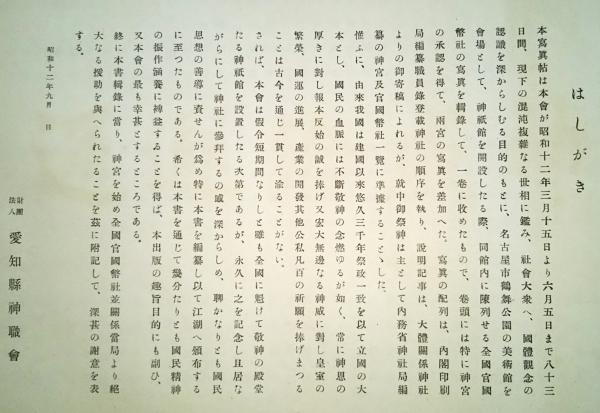 はしがき
本寫眞帖は本會が昭和十二年三月十五日より六月五日まで八十三
日間、現下の混沌複雜なる世相に鑑み、社會大衆へ、國體觀念の
認識を深からしむる目的のもとに、名古屋市鶴舞公園の美術館を
會場として、神祇館を開設したる際、同館内に陳列せる全國官國
幣社の寫眞を輯錄して、一卷に收めたもので、卷頭には特に神宮
の承認を得て、兩宮の寫眞を差加へた。寫眞の配列は、内閣印刷
局編纂職員錄登載神社の順序を執り、説明記事は、大體關係神社
よりの御寄稿によれるが、就中御祭神は主として内務省神社局編
纂の神宮及官國幣社一覽に準據することゝした。
惟ふに、由來我國は建國以來悠久三千年祭政一致を以て立國の大
本とし、國民の血脈には不斷敬神の念燃ゆるが如く、常に神恩の
厚きに對し報本反始の誠を捧げ又宏大無邊なる神威に對し皇室の
繁榮、國運の進展、產業の開發其他公私凡百の祈願を捧げまつる
ことは古今を通じ一貫して渝ることがない。
されば、本會は假令短期間なりしと雖も全國に魁けて敬神の殿堂
たる神祇館を設置したる次第であるが、永久に之を記念し且居な
がらにして神社に參拜するの感を深からしめ、聊かなりとも國民
思想の善導に資せんが爲め特に本書を編纂し以て江湖へ頒布する
に至つたものである。希くは本書を通じて幾分たりとも國民精神
の振作涵養に裨益することを得ば、本出版の趣旨目的にも副ひ、
又本會の最も幸甚とするところである。
終に本書輯錄に當り、神宮を始め全國官國幣社並關係當局より絕
大なる援助を與へられたることを茲に附記して、深甚の謝意を表
する。
昭和十二年九月 日
財團法人 愛知縣神職會